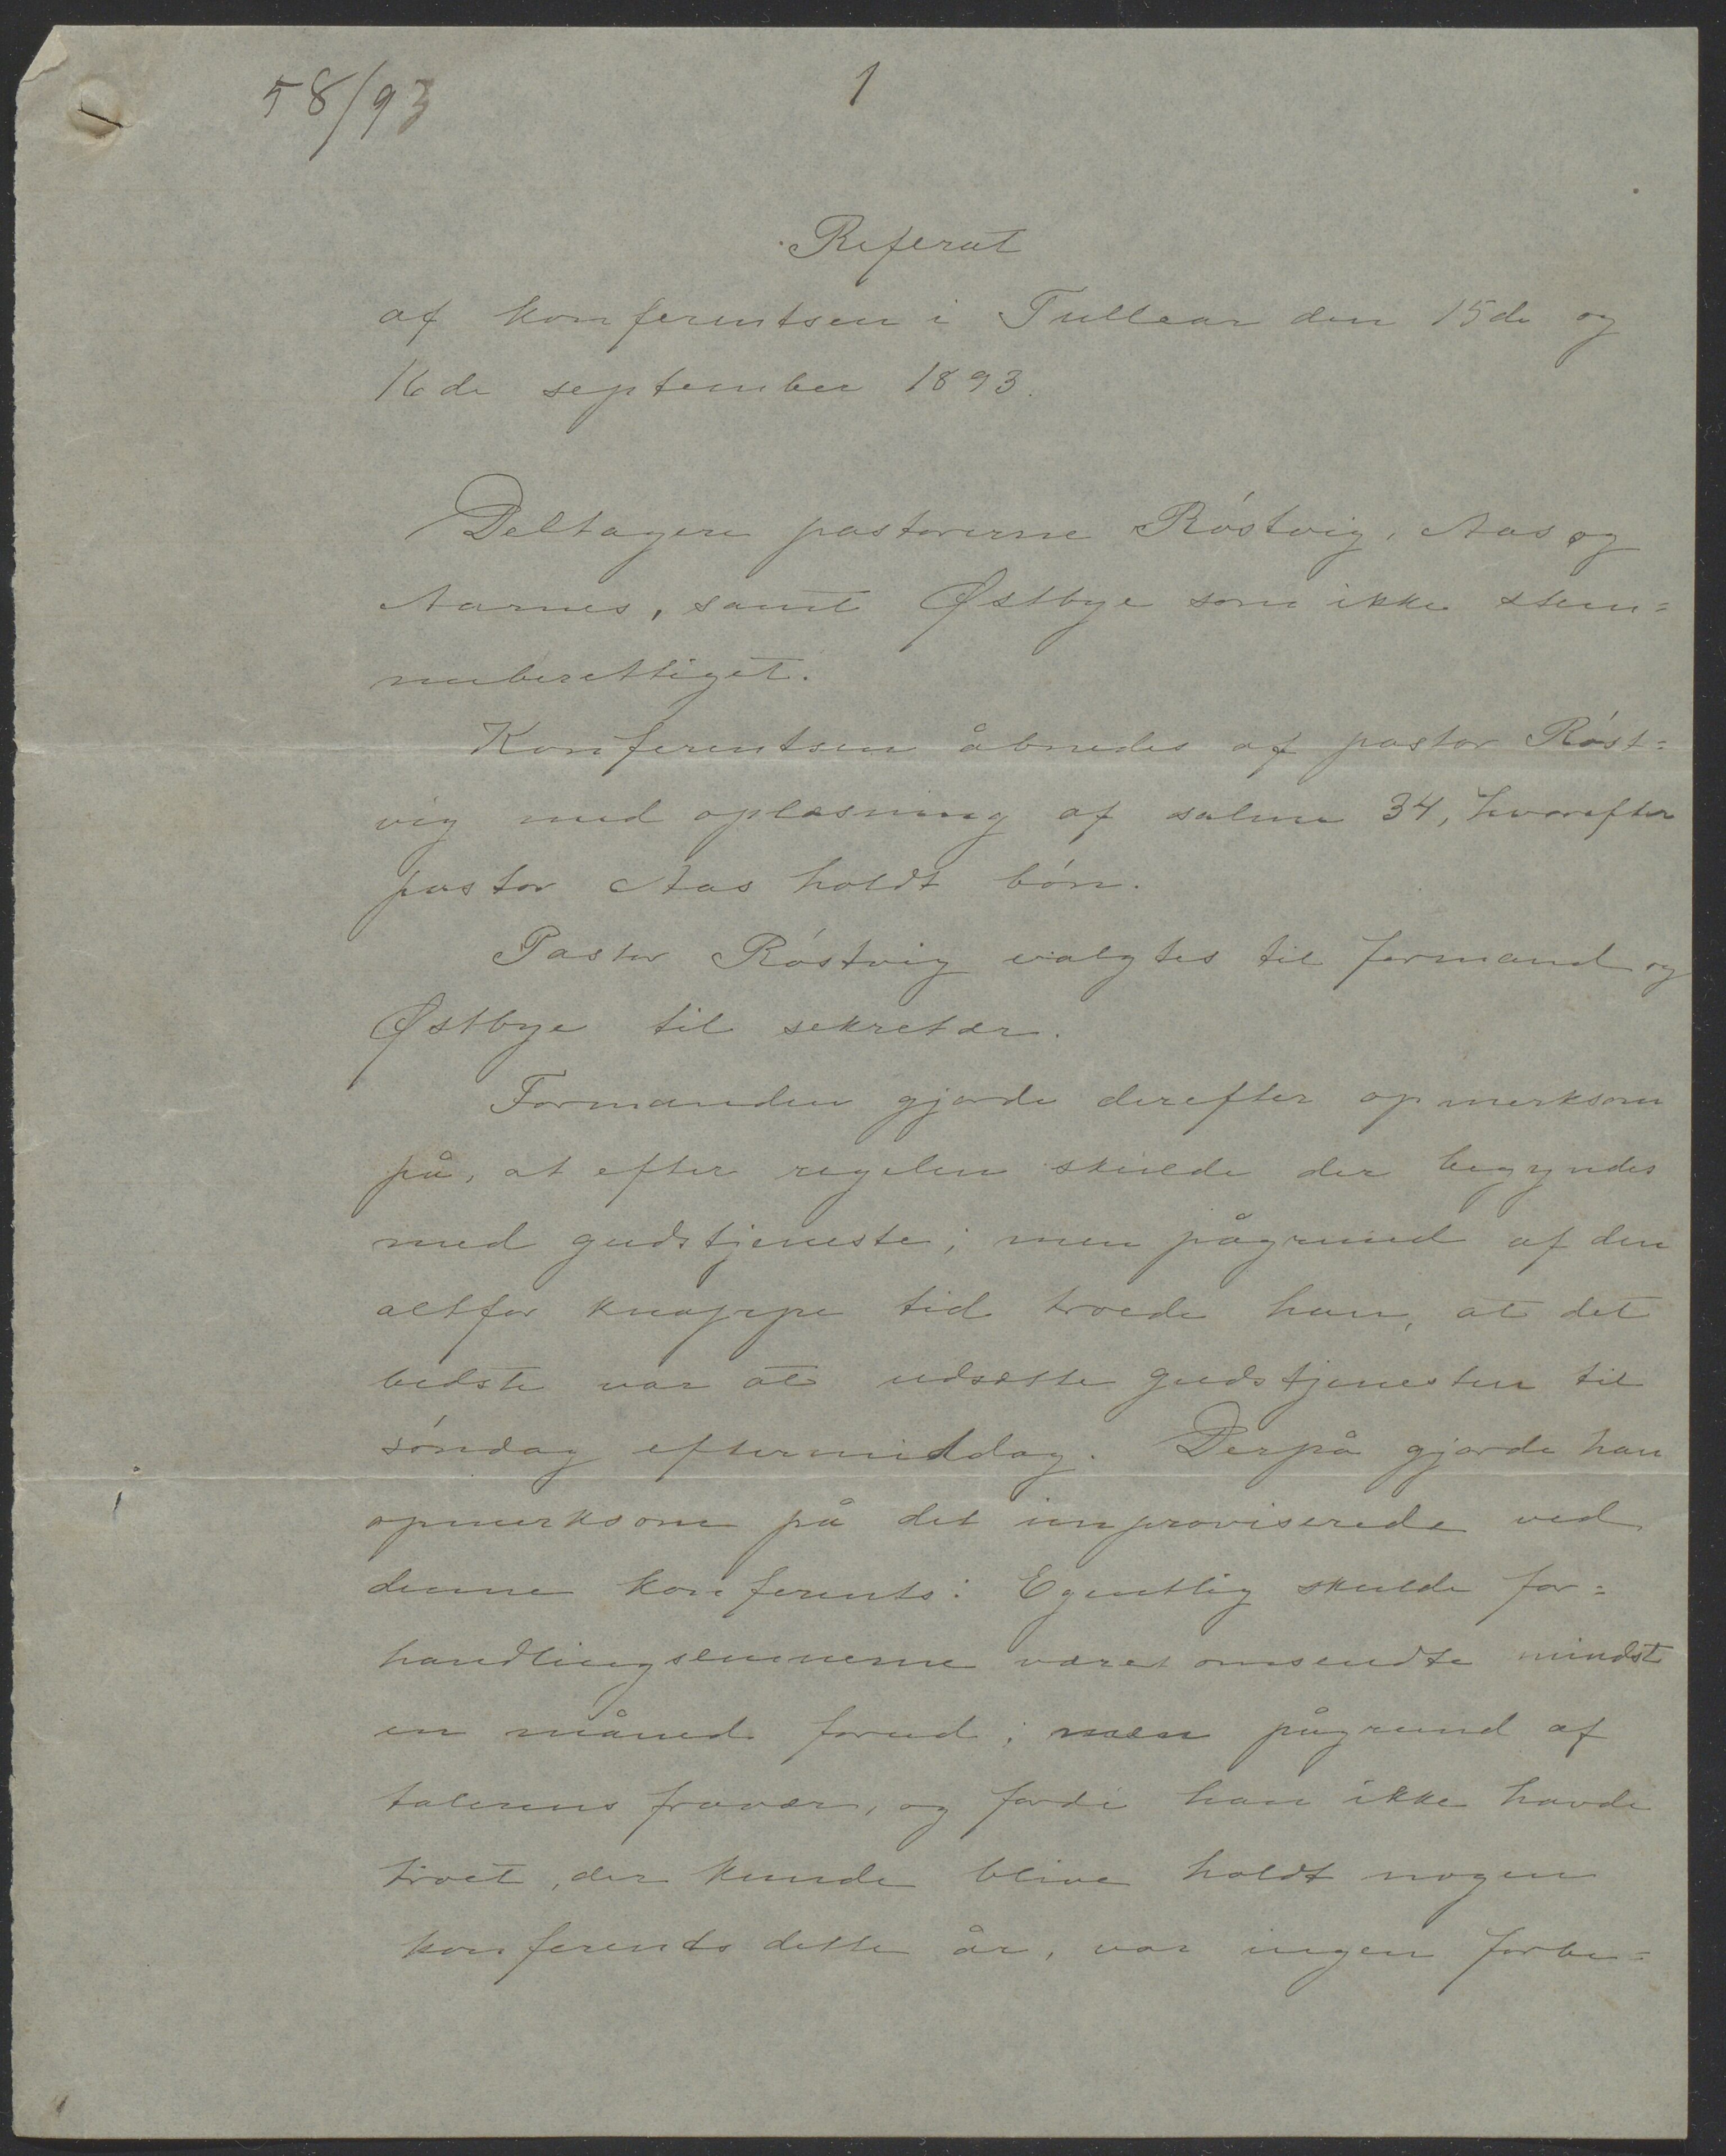 58/93
1
Referat
af konferentsen i Tullear den 15de og
16de september 1893.
Deltagere pastorerne Röstvig, Aas og
Aarnes, samt Østbye som ikke stem=
meberettiget.
Konferentsen åbnedes af pastor Röst=
vig med oplæsning af salme 34, hvorefter
pastor Aas holdt bön.
Pastor Röstvig valgtes til formand og
Østbye til sekretær.
Formanden gjorde derefter opmerksom
på, at efter regelen skulde der begyndes
med gudstjeneste; men pågrund af den
altfor knappe tid troede han, at det
bedste var at udsætte gudstjenesten til
söndag eftermiddag. Derpå gjorde han
opmerksom på det improviserede ved
denne konferents: Egentlig skulde for=
handlingsemnerne været omsendte mindst
en måned forud; men pågrund af
talerens fravær, og fordi han ikke havde
troet, der kunde blive holdt nogen
konferents dette år, var ingen forbe=